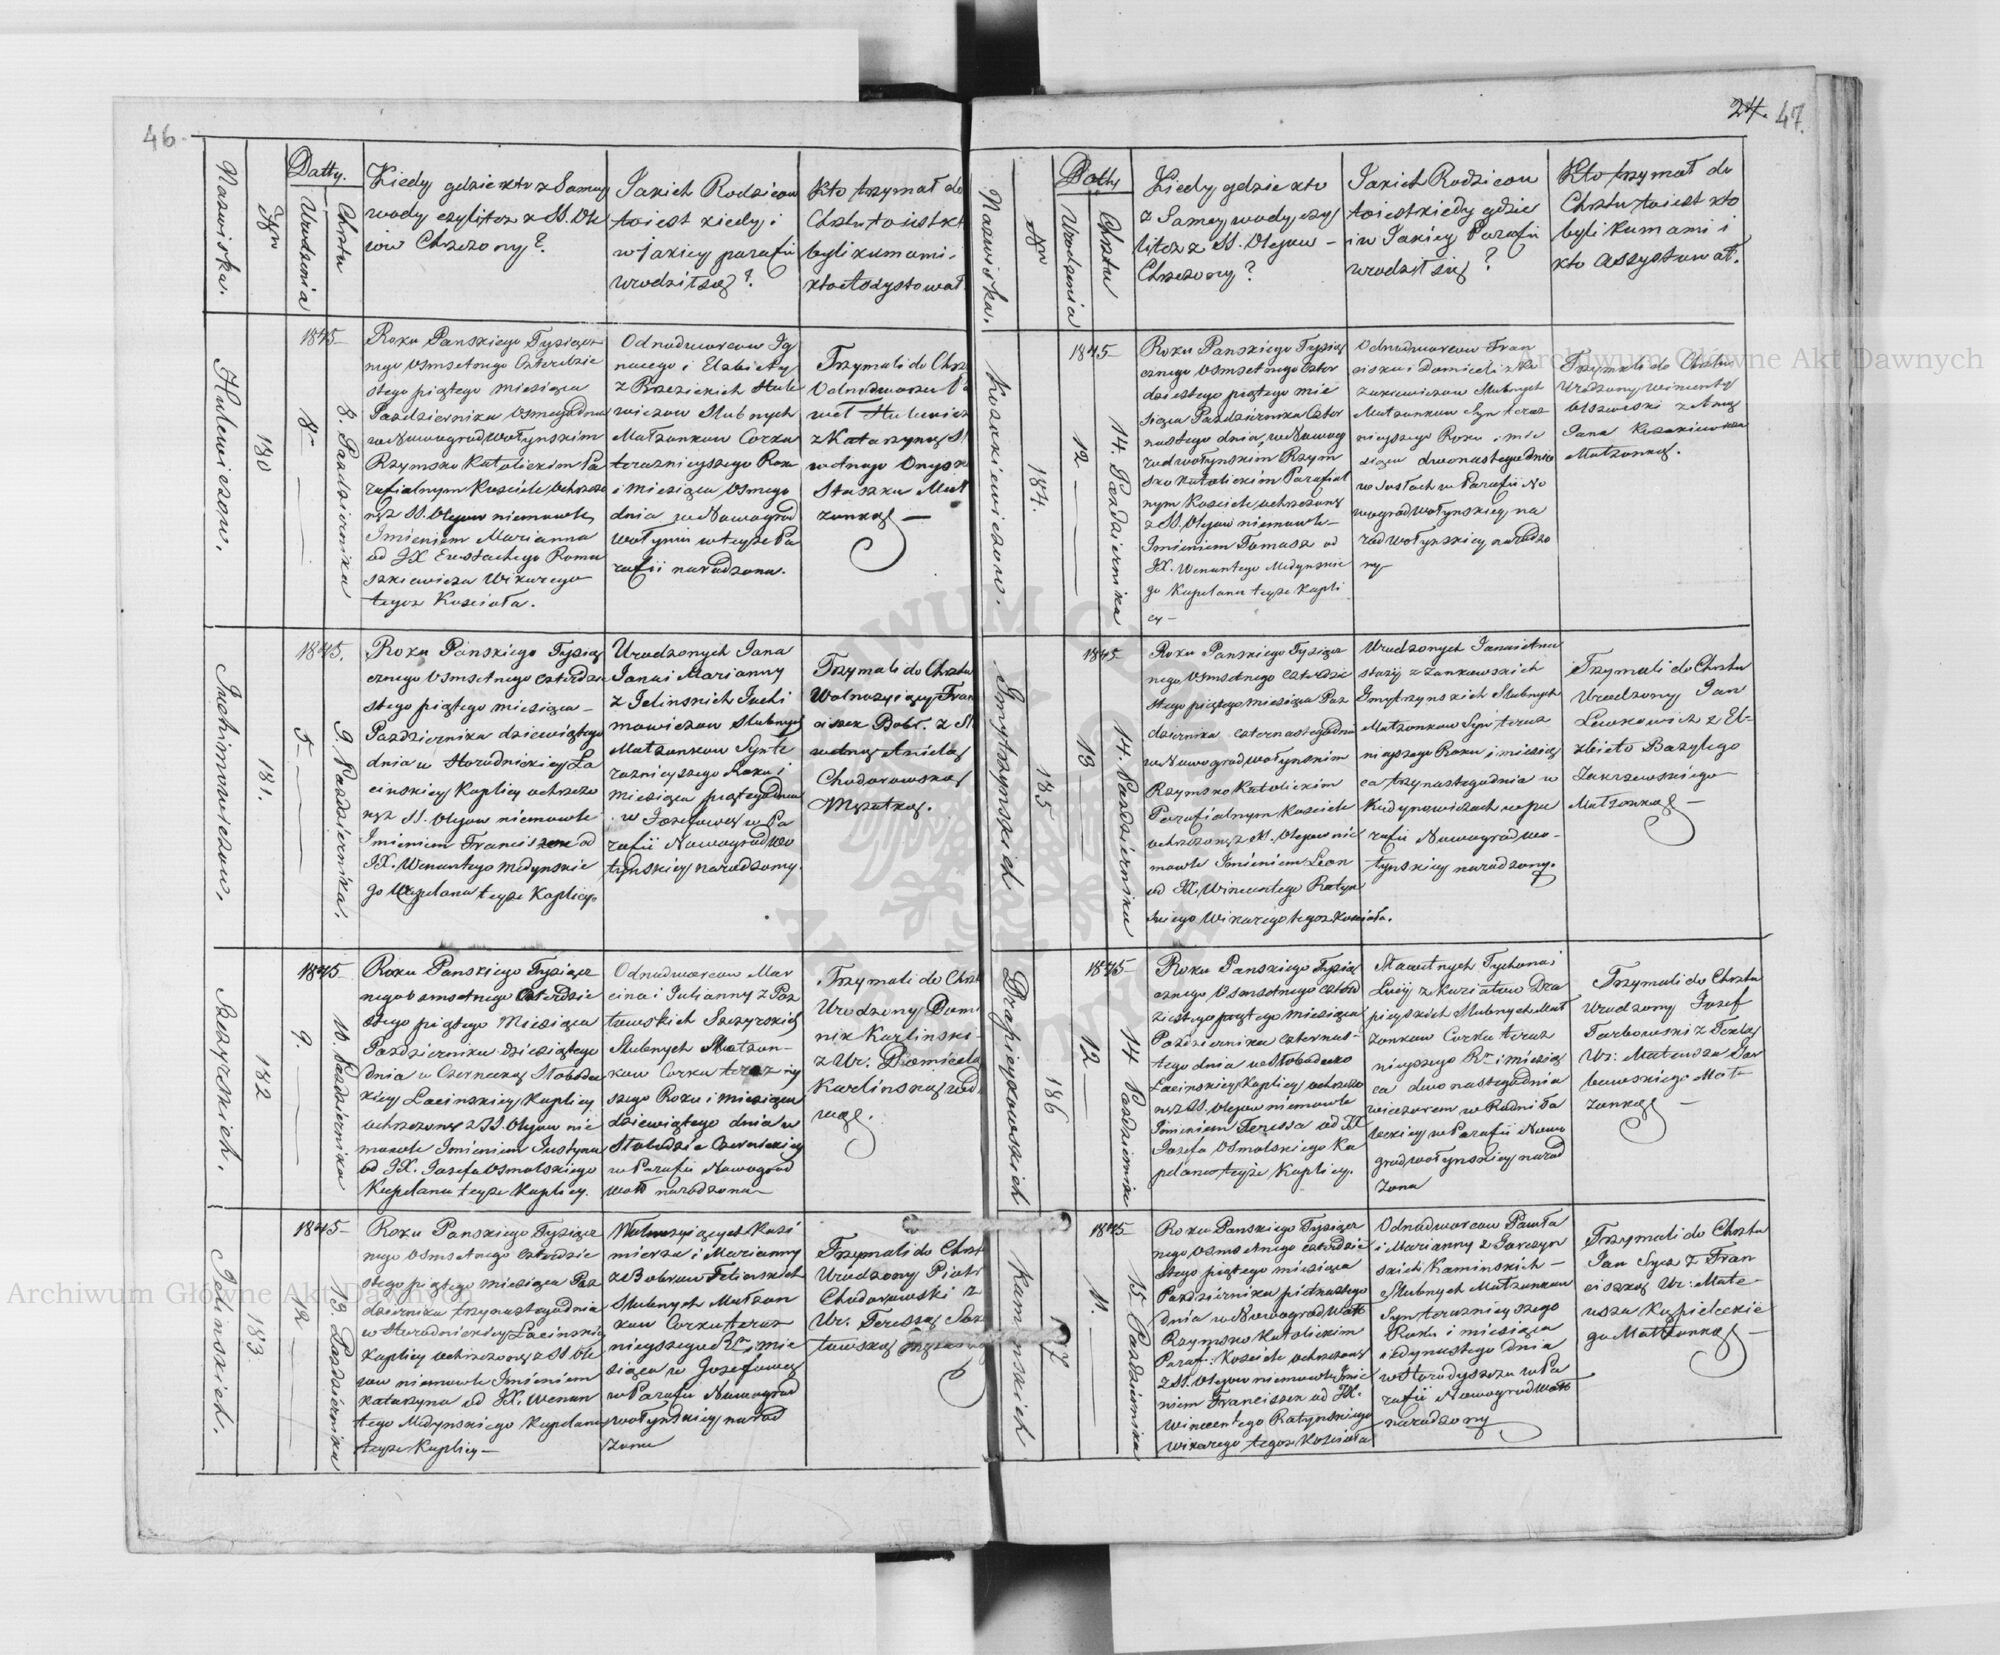 46.
Nazwiska.
Nyn
Datty.
Urodzenia
Chrztu
Kiedy gdzie kto z Samey
wody czylitez z SS. Ole
iów Chrzczony?
Jakich Rodzicow
toiest kiedy i
w jakiey parafii
urodził się?
Kto trzymał do
Chrztu toiest kt
byli kumami i
kto Assystował
Hulewiczow.
180
1845
8
8. Pazdziernika
Roku Panskiego Tysiącz
nego Osmsetnego Czterdzie
stego piątego miesiąca
Pazdziernika Osmego dnia
w Nowogradwołynskim
Rzymsko Katolickim Pa
rafialnym Kosciele ochrzczo
ną z SS. Olejow niemowle
Imieniem Marianna
od JX Eustachego Roma
szkiewicza Wikarego
tegoż Kościoła.
Odnodworcow Ig
nacego i Elzbiety
z Brzezickich Hule
wiczow Slubnych
Małzonkow Corka
teraznieyszego Roku
i miesiąca Osmego
dnia w Nowogrod
wołyniu w teyże Pa
rafii narodzona.
Trzymali do Chrz
Odnodworzec Pa
weł Hulewicz
z Katarzyną
Małzonką
Jachimowiczow.
181.
1845.
5
9. Pazdziernika.
Roku Panskiego Tysiąc
cznego Osmsetnego Czterdzie
stego piątego miesiąca
Pazdziernika dziewiątego
dnia w Horodnickiey Ła
cinskiey Kaplicy ochrzczo
ny z SS. Olejow niemowle
Imieniem Franciszek od
JX. Wenantego Medynskie
go Kapelana teyże Kaplicy.
Urodzonych Jana
Jana i Marianny
z Jelinskich Jachi
mowiczow Slubnych
Małzonkow Syn te
raznieyszego Roku i
Miesiąca piątego dnia
w Jozefowey w Pa
rafii Nowogradwo
łynskiey narodzony.
Trzymali do Chrztu
Wolnożyiący Fran
ciszek Bobr. z
Anielą
Chodorowską
Mężatką.
Szczyrskich.
182
1845
9.
10. Pazdziernika
Roku Panskiego Tysiącz
nego Osmsetnego Czterdzie
stego piątego Miesiąca
Pazdziernika dziesiątego
dnia w Czerneckey Słobodz
kiey Łacinskiey Kaplicy
ochrzczona z SS. Olejow nie
mowle Imieniem Justyna
od JX. Jozefa Osmolskiego
Kapelana teyże Kaplicy.
Odnodworcow Mar
cina i Julianny z Poz
łowskich Szczyrskich
Slubnych Małzon-
kow Corka teraz niey
szego Roku i miesiąca
dziewiątego dnia w
Słobodzie Czerneckiey
w Parafii Nowograd
woł narodzona
Trzymali do Chrzt
Urodzony Domi
nik Karlinski
z Ur. Domicelą
Karlinską wdo
wą.
Jelinskich.
183
1845
12
13. Pazdziernika
Roku Panskiego Tysiącz
nego Osmsetnego Czterdzie
stego piątego miesiąca Paz
dziernika trzynastego dnia
w Horodnickiey Łacinskiey
Kaplicy ochrzczona z SS. Ole
iow niemowle Imieniem
Katarzyna od JX. Wenan
tego Medynskiego Kapelana
teyże Kaplicy
Wolnożyiących Kazi
mierza i Marianny
z Bobrow Jelinskich
Slubnych Małzon
kow Corka teraz
nieyszego Ru i mie
siąca w Jozefowey
w Parafii Nowograd
wołynskiey narod
zona
Trzymali do Chrzt
Urodzony Piotr
Chodorowski z
Ur. Teressą
24. 47.
Nazwiska.
Nyn
Datty
Urodzenia
Chrztu
Kiedy gdzie kto
z Samey wody, czy
litez z SS. Olejow
Chrzczony?
Jakich Rodzicow
toiest kiedy gdzie
i w Jakiey Parafii
urodził się?
Kto trzymał do
Chrztu toiest kto
byli kumami i
kto Assystował.
Kozakiewiczow.
184.
1845
12
14. Pazdziernika
Roku Panskiego Tysiąc
cznego Osmsetnego Czter
dziestego piątego mie
siąca Pazdziernika Czter
nastego dnia w Nowog
radwołynskim Rzym
sko Katolickim Parafial
nym Kosciele ochrzczony
z SS. Olejow niemowle
Imieniem Tomasz od
JX. Wenantego Medynskie
go Kapelana teyże Kapli
cy
Odnodworcow Fran
ciszka i Domiceli z
Małzonkow Syn teraz
nieyszego Roku i mie
siąca dwonastego dnia
w Susłach w Parafii No
wogradwołynskiey na
rodwołynskiey narodzo
ny
Trzymali do Chrztu
Urodzony Wincenty
Olszewski z Anną
Jana Kozakiewicza
Małzonką.
Dmytrzynskich
185
1845
13
14. Pazdziernika
Roku Panskiego Tysiącz
nego Osmsetnego Czterdzie
stego piątego miesiąca Paz
dziernika czternastego dnia
w Nowogradwołynskim
Rzymsko Katolickim
Parafialnym Kosciele
ochrzczony z SS. Olejow nie
mowle Imieniem Leon
od JX. Wincentego Ratyn
skiego Wikarego tegoż Kosciola.
Urodzonych Jana i Ana
stazij z Zankowskich
Dmytrzynskich Slubnych
Małzonkow Syn teraz
nieyszego Roku i miesią
ca trzynastego dnia w
Kudynowiczach w pa
rafii Nowogradwo-
łynskiey narodzony.
Trzymali do Chrztu
Urodzony Jan
Lewkowicz z El-
zbietą Bazylego
Zakrzewskiego
Małzonką
186
1845
12
14 Pazdziernika
Roku Panskiego Tysiąc
cznego Osmsetnego Czterd
ziestego piątego miesiąca
Pazdziernika czternas-
tego dnia w Słobodzko
Łacinskiey Kaplicy ochrzczo
ną z SS. Olejow niemowle
Imieniem Teressa od JX
Jozefa Osmolskiego Ka
pelana teyże Kaplicy.
Sławetnych Tychona i
Łucij z Kuziatow Dra
pieyskich Slubnych Mał
zonkow Corka teraz
nieyszego Ru i miesią
ca dwonastego dnia
wieczorem w Rudni
w Parafii Nowo
gradwołynskiey narod
zona
Trzymali do Chrztu
Urodzony Jozef
Tarbowski z Teklą
Ur: Mateusza Gar
bowskiego Małz
zonką
Kaminskich
187
1845
11
15 Pazdziernika
Roku Panskiego Tysiącz
nego Osmsetnego Czterdzie
stego piątego miesiąca
Pazdziernika piętnastego
dnia w Nowogradwoł
Rzymsko Katolickim
Paraf: Kosciele ochrzczony
z SS. Olejow niemowle Imie
niem Franciszek od JX.
Wincentego Ratynskiego
Wikarego tegoż Kosciola
Odnodworcow Pawła
i Marianny z Garczyn
skich Kaminskich
Slubnych Małzonkow
Syn teraznieyszego
Roku i miesiąca
iedynastego dnia
w Horodyszczu w Pa
rafii Nowogradwoł
narodzony
Trzymali do Chrztu
Jan Sycz z Fran
ciszką Ur: Mate-
usza Kupieleckie
go Małzonką
Archiwum Główne Akt Dawnych
Archiwum Główne Akt Dawnych